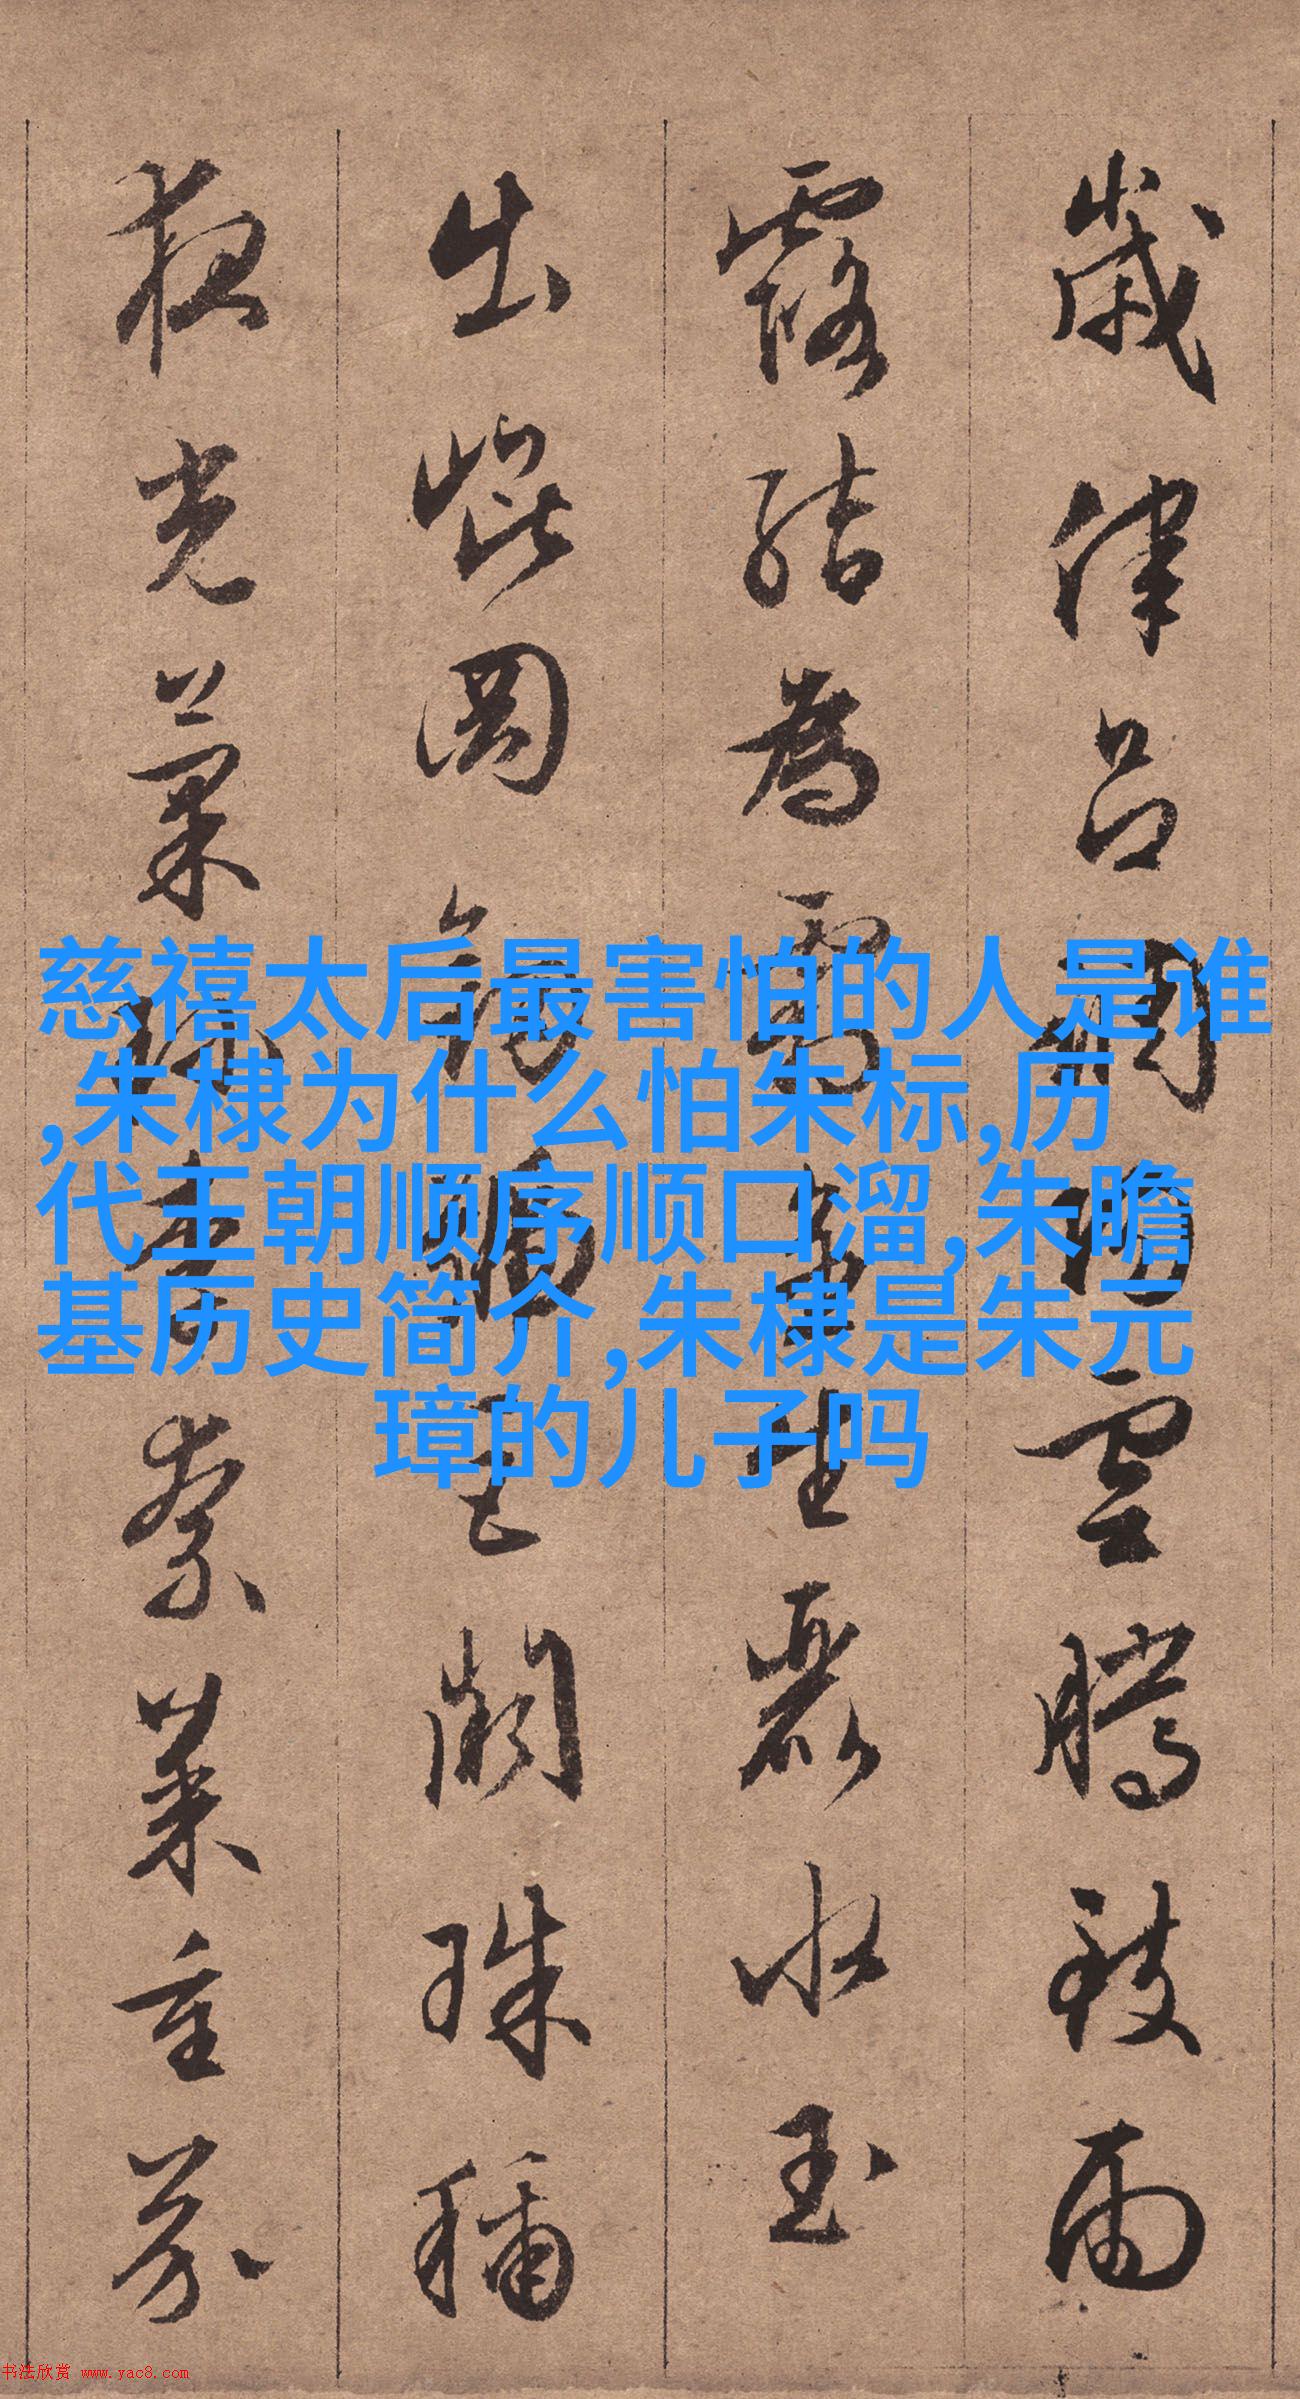 歲律呂調陽雲騰致雨
露結為霜金生麗水玉
出崐岡劔號巨闕珠稱
夜光菓珍李柰菜重芥
慈禧太后最害怕的人是谁
,朱棣为什么怕朱标,历
代王朝顺序顺口溜,朱瞻
基历史简介,朱棣是朱元
璋的儿子吗
书法欣赏 www.yac8.com